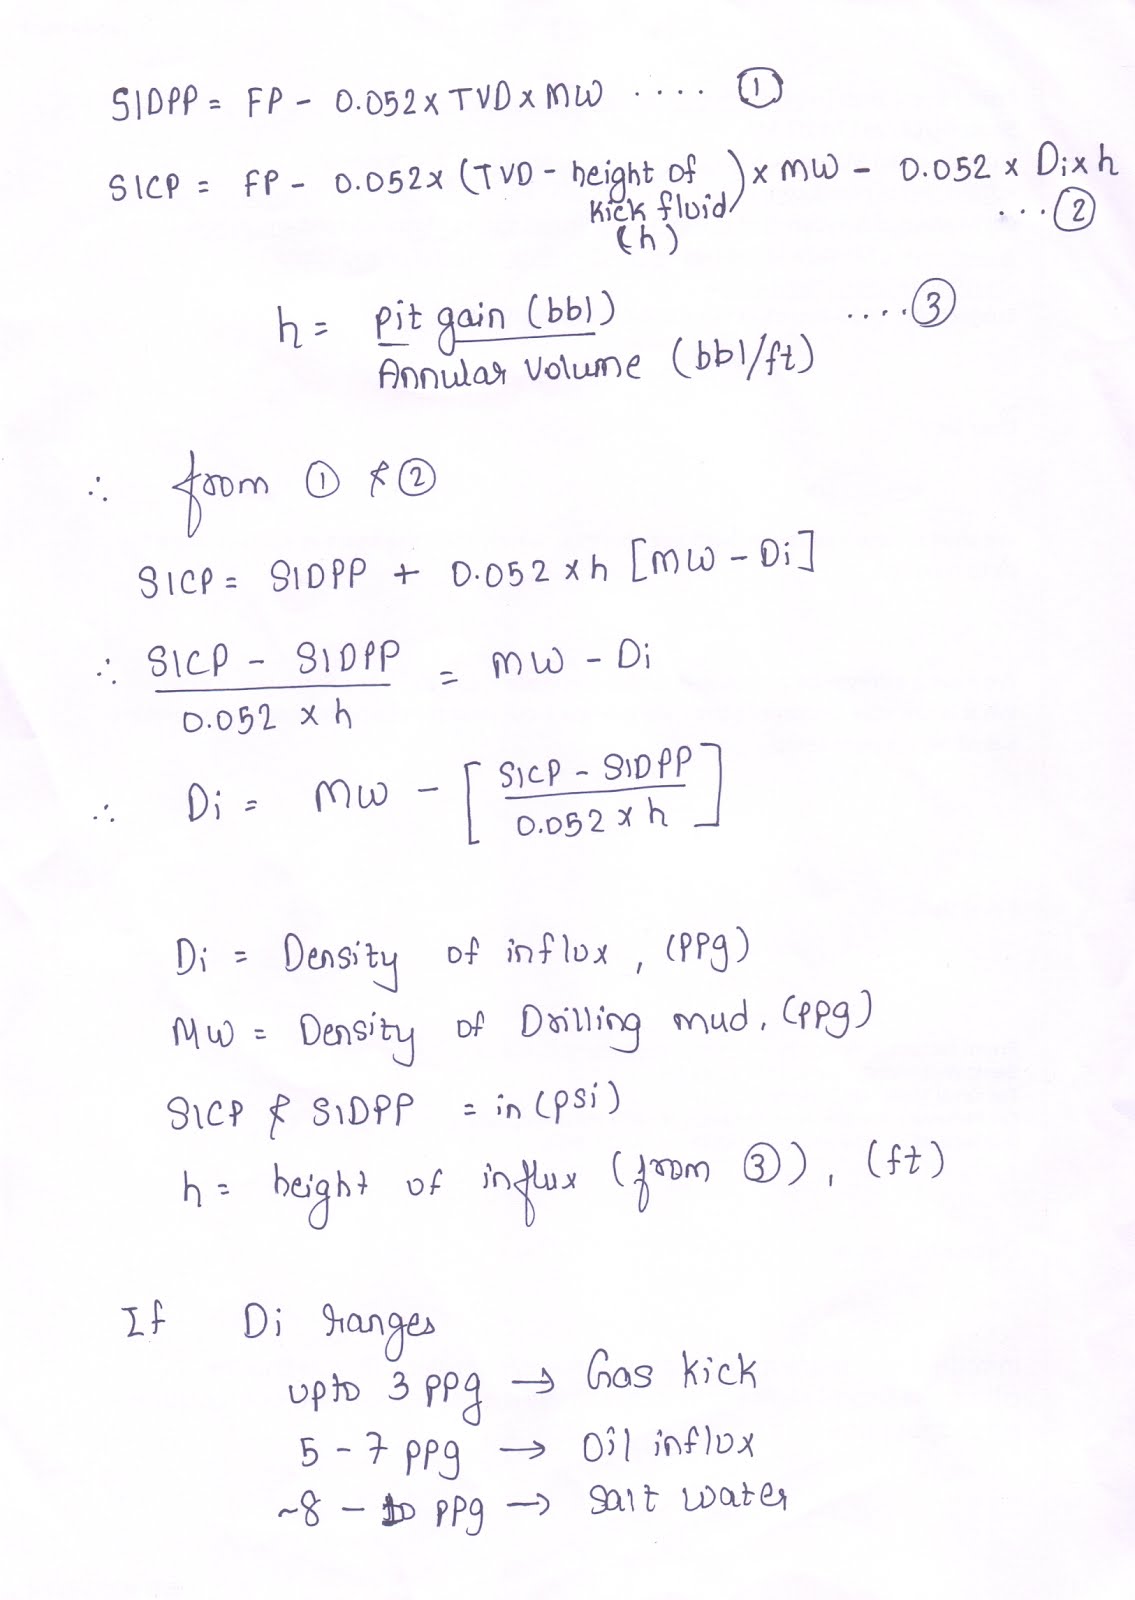 SIDPP = FP - 0.052 x TVD x MW .... ①
SICP = FP - 0.052 x (TVD - height of kick fluid (h)) x MW - 0.052 x Di x h
...②
h = pit gain (bbl) ....③
Annular Volume (bbl/ft)
∴ from ① & ②
SICP = SIDPP + 0.052 x h [MW - Di]
∴ SICP - SIDPP = MW - Di
0.052 x h
∴ Di = MW - [SICP - SIDPP
0.052 x h]
Di = Density of influx, (PPg)
MW = Density of Drilling mud, (PPg)
SICP & SIDPP = in (psi)
h = height of influx (from ③), (ft)
If Di ranges
upto 3 PPg → Gas kick
5 - 7 PPg → Oil influx
~8 - 10 PPg → Salt water